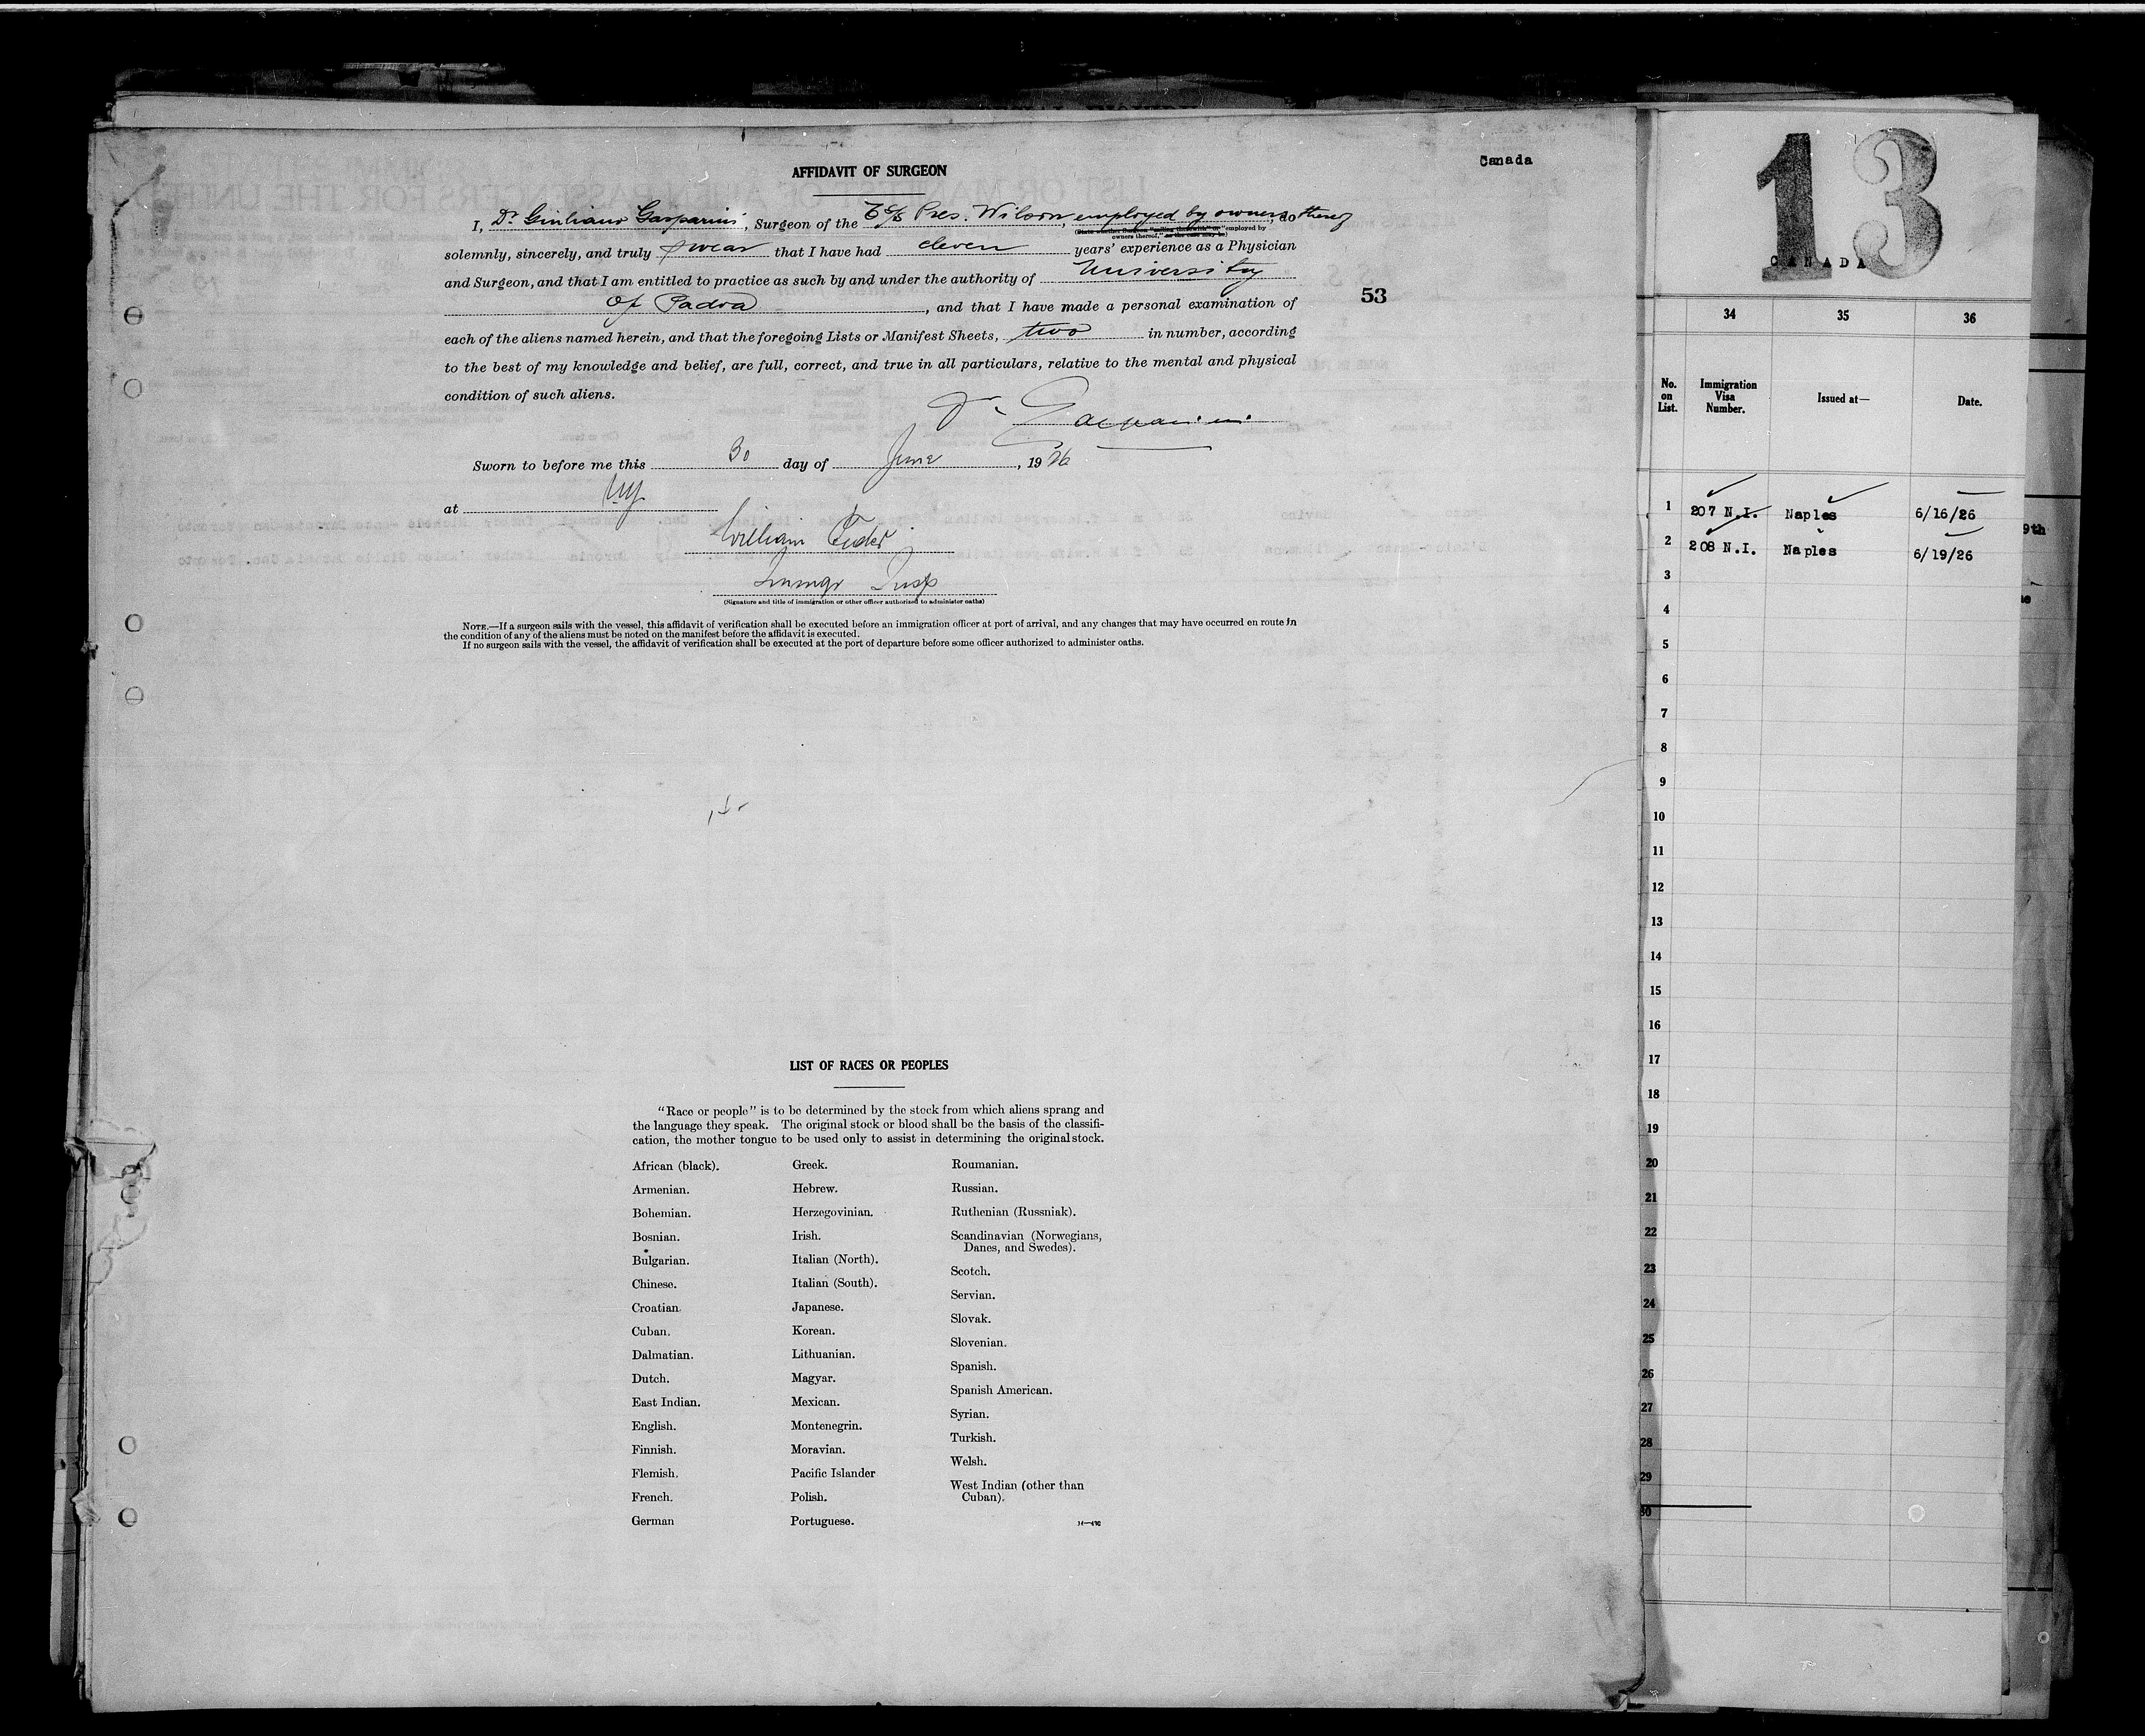 Canada
AFFIDAVIT OF SURGEON
I, Dr Giuliano Gasparini, Surgeon of the S/S Pres. Wilson, employed by owners, do thereof
(State whether Surgeon "sailing therewith" or "employed by
owners thereof," as the case may be)
solemnly, sincerely, and truly swear that I have had eleven years' experience as a Physician
and Surgeon, and that I am entitled to practice as such by and under the authority of University
of Padva, and that I have made a personal examination of
53
each of the aliens named herein, and that the foregoing Lists or Manifest Sheets, two in number, according
to the best of my knowledge and belief, are full, correct, and true in all particulars, relative to the mental and physical
condition of such aliens.
Gasparini
Sworn to before me this 30 day of June, 1926
at NY
William
Immigr Insp
(Signature and title of immigration or other officer authorized to administer oaths)
NOTE.—If a surgeon sails with the vessel, this affidavit of verification shall be executed before an immigration officer at port of arrival, and any changes that may have occurred en route in
the condition of any of the aliens must be noted on the manifest before the affidavit is executed.
If no surgeon sails with the vessel, the affidavit of verification shall be executed at the port of departure before some officer authorized to administer oaths.
LIST OF RACES OR PEOPLES
"Race or people" is to be determined by the stock from which aliens sprang and
the language they speak. The original stock or blood shall be the basis of the classifi-
cation, the mother tongue to be used only to assist in determining the original stock.
African (black).
Armenian.
Bohemian.
Bosnian.
Bulgarian.
Chinese.
Croatian.
Cuban.
Dalmatian.
Dutch.
East Indian.
English.
Finnish.
Flemish.
French.
German
Greek.
Hebrew.
Herzegovinian.
Irish.
Italian (North).
Italian (South).
Japanese.
Korean.
Lithuanian.
Magyar.
Mexican.
Montenegrin.
Moravian.
Pacific Islander
Polish.
Portuguese.
Roumanian.
Russian.
Ruthenian (Russniak).
Scandinavian (Norwegians,
Danes, and Swedes).
Scotch.
Servian.
Slovak.
Slovenian.
Spanish.
Spanish American.
Syrian.
Turkish.
Welsh.
West Indian (other than
Cuban).
13
CANADA
34 35 36
No. on List. Immigration Visa Number. Issued at— Date.
1 207 N.I. Naples 6/16/26
2 208 N.I. Naples 6/19/26
3
4
5
6
7
8
9
10
11
12
13
14
15
16
17
18
19
20
21
22
23
24
25
26
27
28
29
30
9th